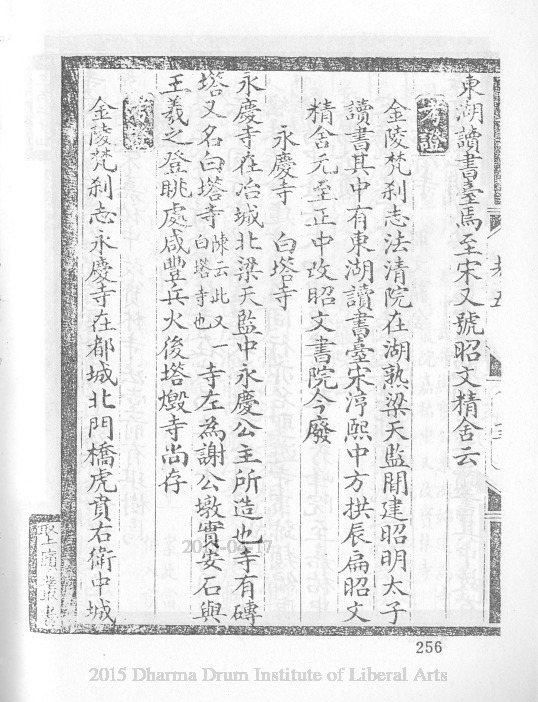 東湖讀書臺焉至宋又號昭文精舍云
考證
金陵梵刹志法清院在湖熟梁天監間建昭明太子
讀書其中有東湖讀書臺宋淳熙中方拱辰扁昭文
精舍元至正中改昭文書院今廢
永慶寺 白塔寺
永慶寺在冶城北梁天監中永慶公主所造也寺有磚
塔又名白塔寺陳云此又一白塔寺也寺左為謝公墩實安石與
王羲之登眺處咸豐兵火後塔燬寺尚存
考證
金陵梵刹志永慶寺在都城北門橋虎賁右衛中城
卷五
256
2015 Dharma Drum Institute of Liberal Arts